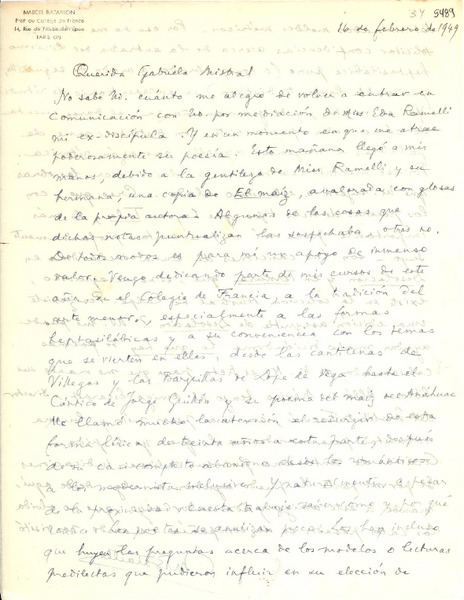 MARCEL BATAILLON
Prof. au Collège de France
14, Rue de l'Abbé-de-l'Épée
PARIS (5e)
16 de febrero de 1949
Querida Gabriela Mistral
No sabe Ud. cuánto me alegro de volver a entrar en
comunicación con Ud. por mediación de Miss Edna Ramelli
mi ex-discípula. Y en un momento en que me atrae
poderosamente su poesía. Esta mañana llegó a mis
manos, debido a la gentileza de Miss Ramelli y su
hermana, una copia de El maíz, avalorada con glosas
de la propia autora. Algunas de las cosas que
dichas notas puntualizan las sospechaba, otras no.
De todos modos es para mí un apoyo de inmenso
valor. Vengo dedicando parte de mis cursos de este
año, en el Colegio de Francia a la tradición del
arte menor, especialmente a las formas
heptasilábicas y a su conveniencia con los temas
que se vierten en ellas, desde las cantilenas de
Villegas y las barquillas de Lope de Vega hasta el
Cántico de Jorge Guillén y su poema del maíz de Anáhuac
Me llamó mucho la atención el resurgir de esta
forma lírica, de treinta años a esta parte, después
de su casi completo abandono desde los románticos
a los modernistas inclusive. Y
de la
los poetas se analizan poco. Los hay incluso
que huyen las preguntas acerca de los modelos o lecturas
predilectas que pudieron influir en su elección de